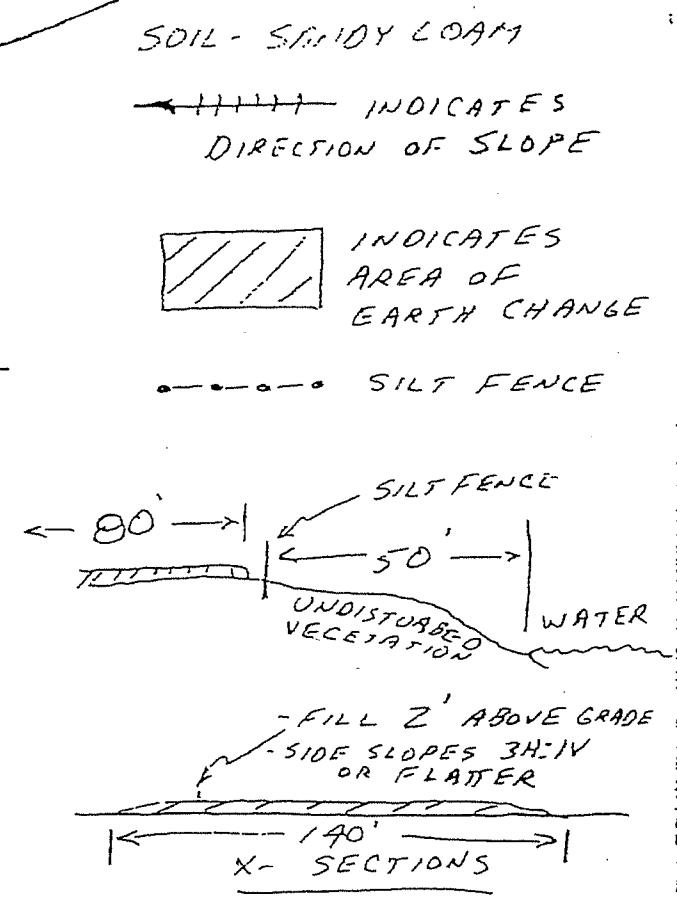 SOIL - SANDY LOAM
INDICATES
DIRECTION OF SLOPE
INDICATES
AREA OF
EARTH CHANGE
SILT FENCE
SILT FENCE
80'
50'
UNDISTURBED
VEGETATION
WATER
- FILL 2' ABOVE GRADE
- SIDE SLOPES 3H:1V
OR FLATTER
140'
X- SECTIONS